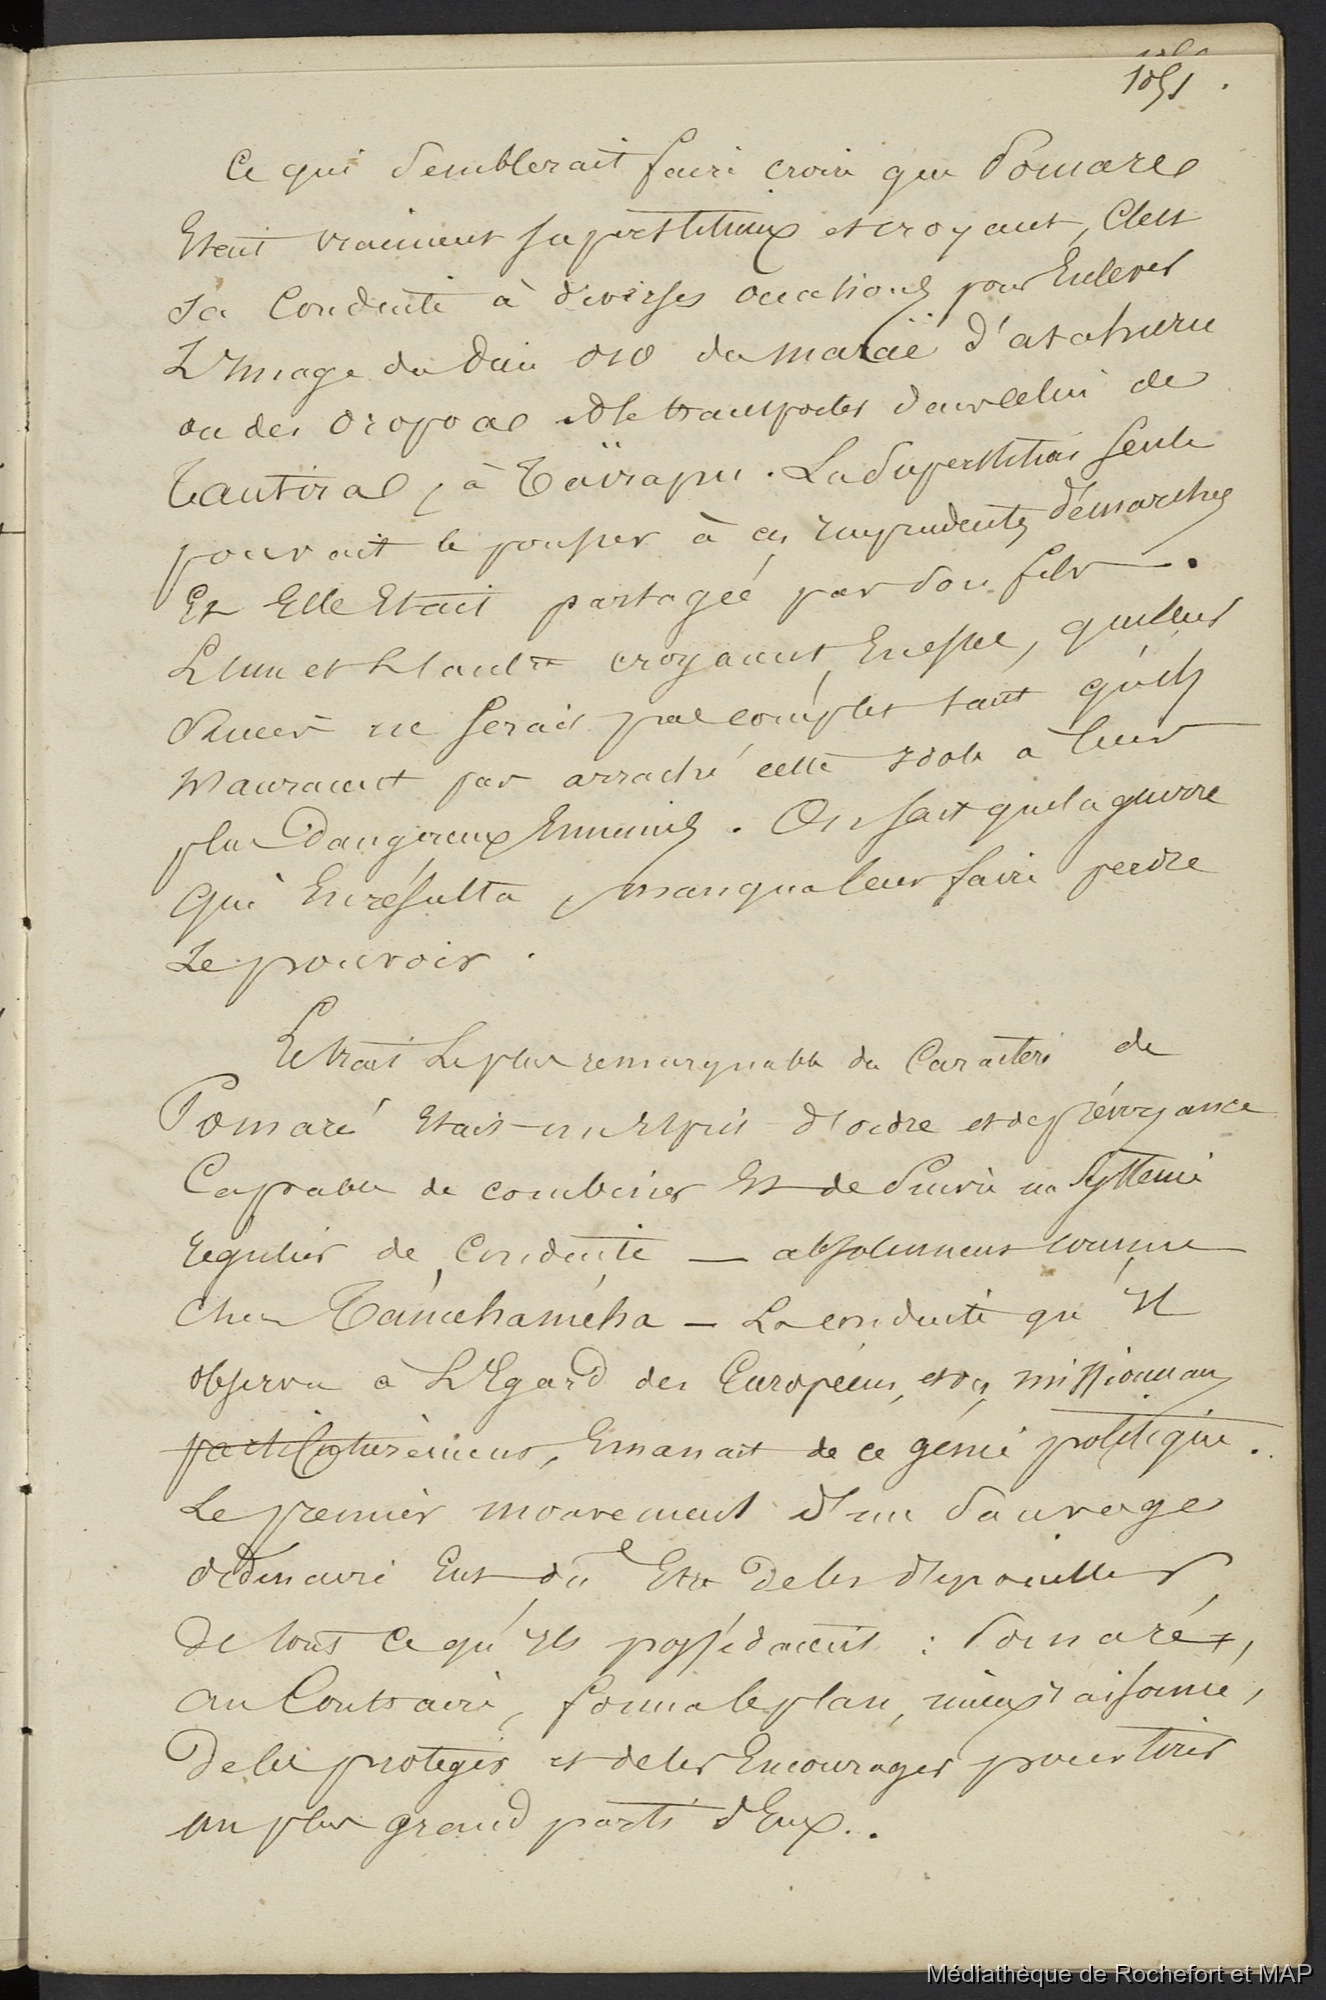 1851.
Ce qui semblerait faire croire que Pomare
Etait vraiment superstitieux et croyant, C'est
sa Conduite à diverses occasions pour Enlever
L'Image du Dieu oro du maraë d'atahuru
ou des oropoa et le transporter dans celui de
Tautira, à Taïrapu. La Superstition seule
pouvait le pousser à ces Imprudentes démarches
Et Elle Etait partagée par son fils.
L'un et L'autre croyaient, En effet, que leur
Succès ne serait pas complet tant qu'ils
N'auraient pas arraché cette Idole à leurs
plus Dangereux Ennemis. On sait que la guerre
qui En résulta, manqua leur faire perdre
Le pouvoir.
Le trait Le plus remarquable du Caractère de
Pomaré Etait un Esprit d'ordre et de prévoyance
Capable de combiner Et de Suivre un Système
régulier de Conduite — absolument comme
chez Taméhaméha — La conduite qu'Il
observa à L'Egard des Européens, et des missionnaires
particulièrement, Emanait de ce génie politique.
Le premier mouvement d'un Sauvage
ordinaire Eut dû Etre De les dépouiller
De tout ce qu'Ils possédaient : Pomaré,
au Contraire, forma le plan, mieux raisonné,
De les protéger et de les Encourager pour tirer
un plus grand parti d'Eux..
Médiathèque de Rochefort et MAP